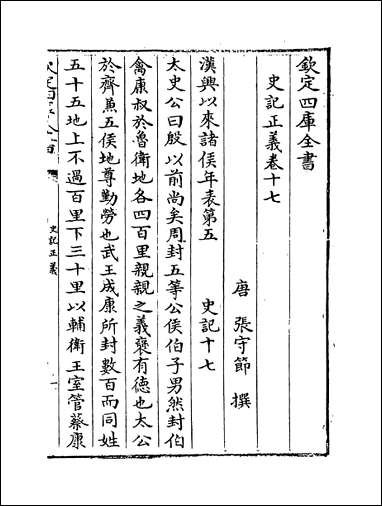 欽定四庫全書
史記正義卷十七
唐 張守節 撰
漢興以來諸侯年表第五 史記十七
太史公曰殷以前尚矣周封五等公侯伯子男然封伯
禽康叔於魯衛地各四百里親親之義襃有德也太公
於齊兼五侯地尊勤勞也武王成康所封數百而同姓
五十五地上不過百里下三十里以輔衛王室管蔡康
史記正義